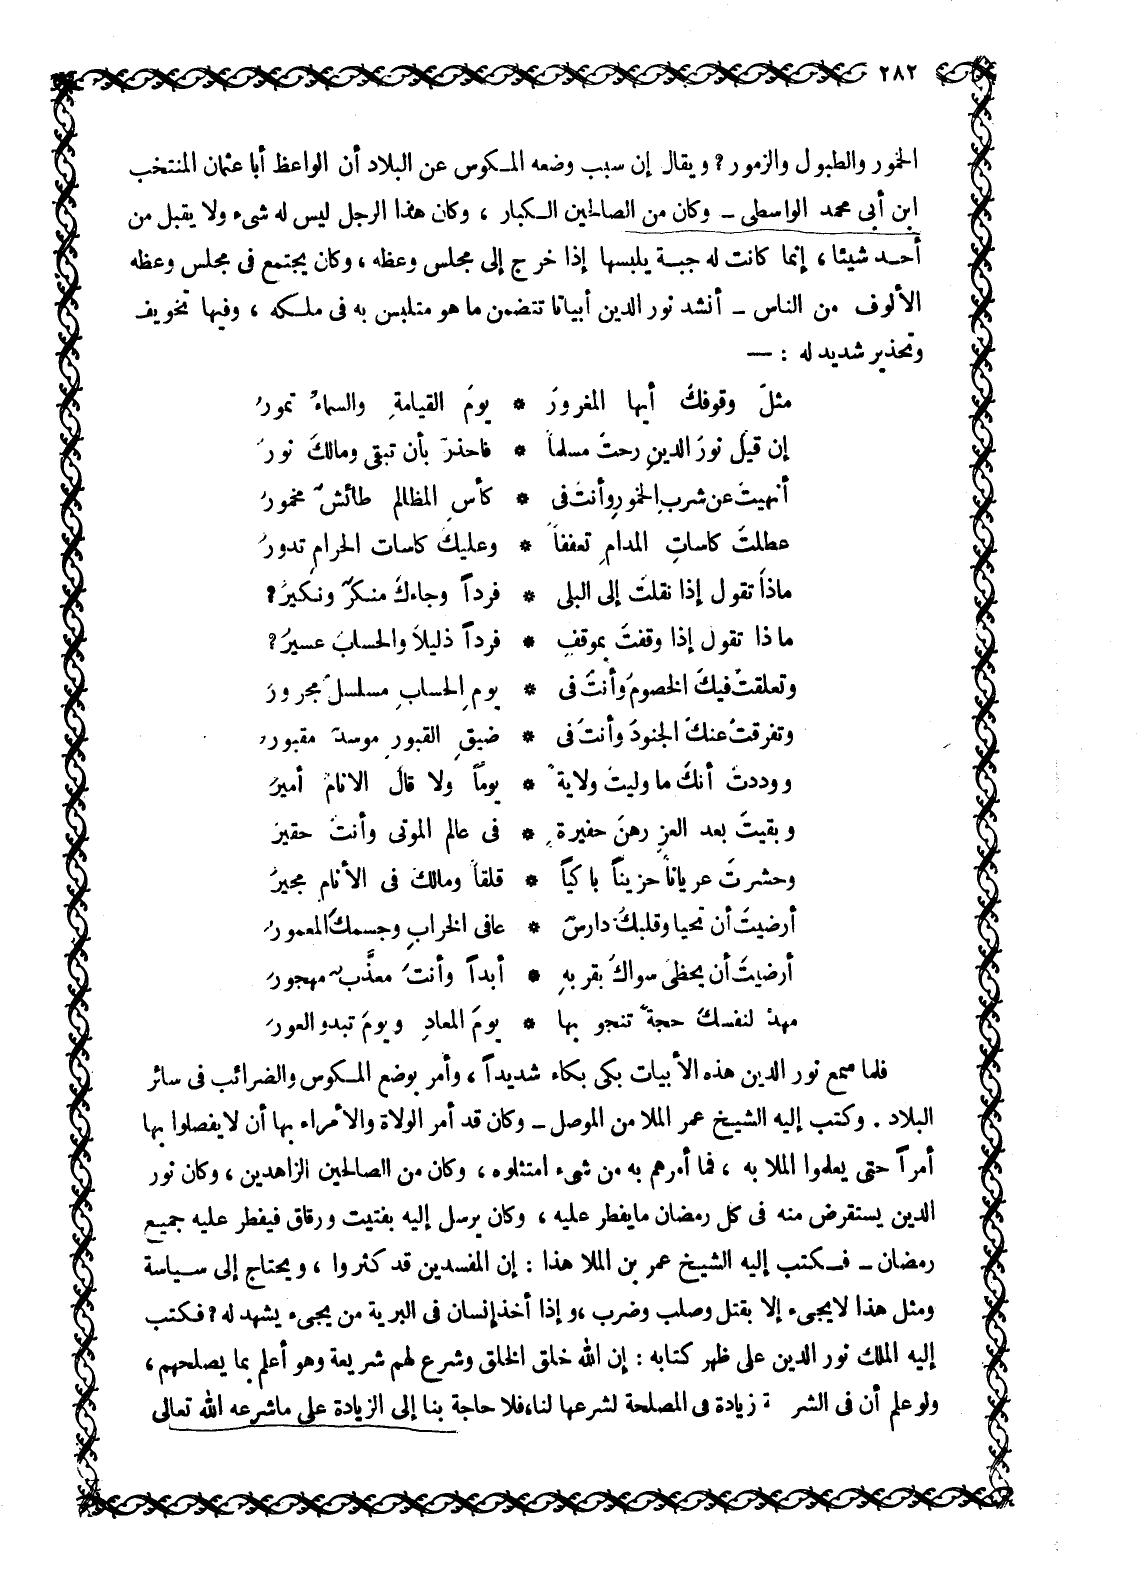 ٢٨٢
الخمور والطبول والزمور؟ ويقال إن سبب وضعه المكوس عن البلاد أن الواعظ أبا عثمان المنتخب
ابن أبي محمد الواسطى ــ وكان من الصالحين الكبار ، وكان هذا الرجل ليس له شىء ولا يقبل من
أحد شيئا ، إنما كانت له جبة يلبسها إذا خرج إلى مجلس وعظه ، وكان يجتمع فى مجلس وعظه
الألوف من الناس ــ أنشد نور الدين أبياتا تتضمن ما هو متلبس به فى ملكه ، وفيها تخويف
وتحذير شديد له : ــ
مثلّ وقوفكَ أيها المغرورَ * يومَ القيامةِ والسماءُ تمورُ
إن قيلَ نورَ الدينِ رحتَ مسلماً * فاحذرْ بأن تبقى ومالكَ نورَ
أنهيتَ عن شربِ الخمورِ وأنتَ فى * كأسِ المظالم طائشٌ مخمورُ
عطلتَ كاساتِ المدامِ تعففاً * وعليكَ كاسات الحرامِ تدورُ
ماذا تقول إذا نقلتَ إلى البلى * فرداً وجاءكَ منكرٌ ونكيرُ؟
ماذا تقول إذا وقفتَ بموقفٍ * فرداً ذليلاً والحسابَ عسيرُ؟
وتعلقتْ فيكَ الخصومَ وأنتَ فى * يومِ الحسابِ مسلسلٌ مجرورَ
وتفرقتْ عنكَ الجنودَ وأنتَ فى * ضيقِ القبورِ موسدٌ مقبورُ
ووددتَ أنكَ ما وليتَ ولايةً * يوماً ولا قالَ الانامُ أميرُ
وبقيتَ بعد العزِ رهنَ حفيرةٍ * فى عالم الموتى وأنتَ حقيرَ
وحشرتَ عرياناً حزيناً باكياً * قلقاً ومالكَ فى الأنامِ مجيرُ
أرضيتَ أن تحيا وقلبكَ دارسٌ * عافى الخرابِ وجسمكَ المعمورُ
أرضيتَ أن يحظى سواكَ بقربهِ * أبداً وأنتَ معذَّبٌ مهجورُ
مهدْ لنفسكَ حجةً تنجو بها * يومَ المعادِ ويومَ تبدو العورَ
فلما سمع نور الدين هذه الأبيات بكى بكاء شديداً ، وأمر بوضع المكوس والضرائب فى سائر
البلاد . وكتب إليه الشيخ عمر الملا من الموصل ــ وكان قد أمر الولاة والأمراء بها أن لا يفصلوا بها
أمراً حتى يعلموا الملا به ، فما أمرهم به من شىء امتثلوه ، وكان من الصالحين الزاهدين ، وكان نور
الدين يستقرض منه فى كل رمضان ما يفطر عليه ، وكان يرسل إليه بفتيت ورقاق فيفطر عليه جميع
رمضان ــ فكتب إليه الشيخ عمر بن الملا هذا : إن المفسدين قد كثروا ، ويحتاج إلى سياسة
ومثل هذا لا يجىء إلا بقتل وصلب وضرب ، وإذا أخذ إنسان فى البرية من يجىء يشهد له ؟ فكتب
إليه الملك نور الدين على ظهر كتابه : إن الله خلق الخلق وشرع لهم شريعة وهو أعلم بما يصلحهم ،
ولو علم أن فى الشر ة زيادة فى المصلحة لشرعها لنا، فلا حاجة بنا إلى الزيادة على ما شرعه الله تعالى